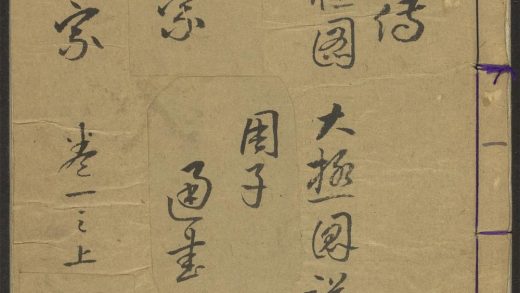 傳
圖
大極圖説
周子
通書
宗
宗
卷一之上